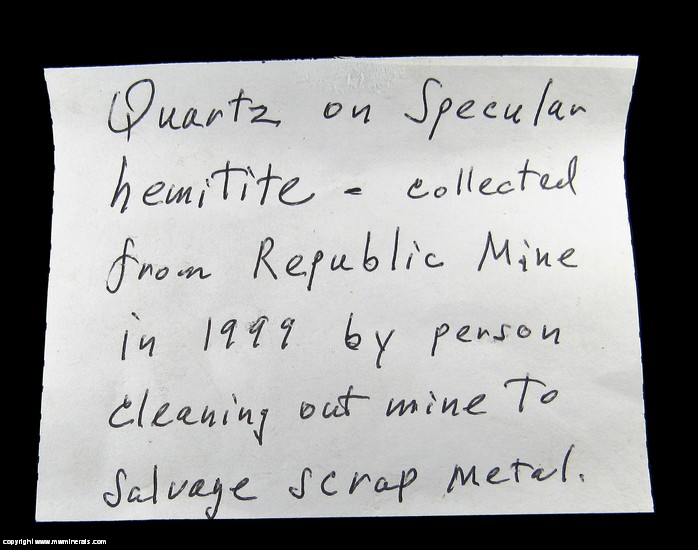 Quartz on Specular
hemitite - collected
from Republic Mine
in 1999 by person
cleaning out mine To
Salvage scrap metal.
copyright www.mwminerals.com